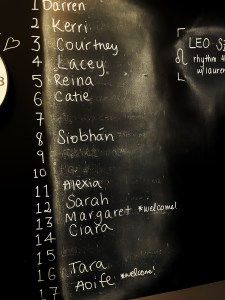 1 Darren
2 Kerri
3 Courtney
4 Lacey
5 Reina
6 Catie
7
8 Siobhán
9
10
11 Alexia
12 Sarah
13 Margaret *welcome!
14 Ciara
15
16 Tara
17 Aoife *welcome!
LEO
rhythm
w/lauren